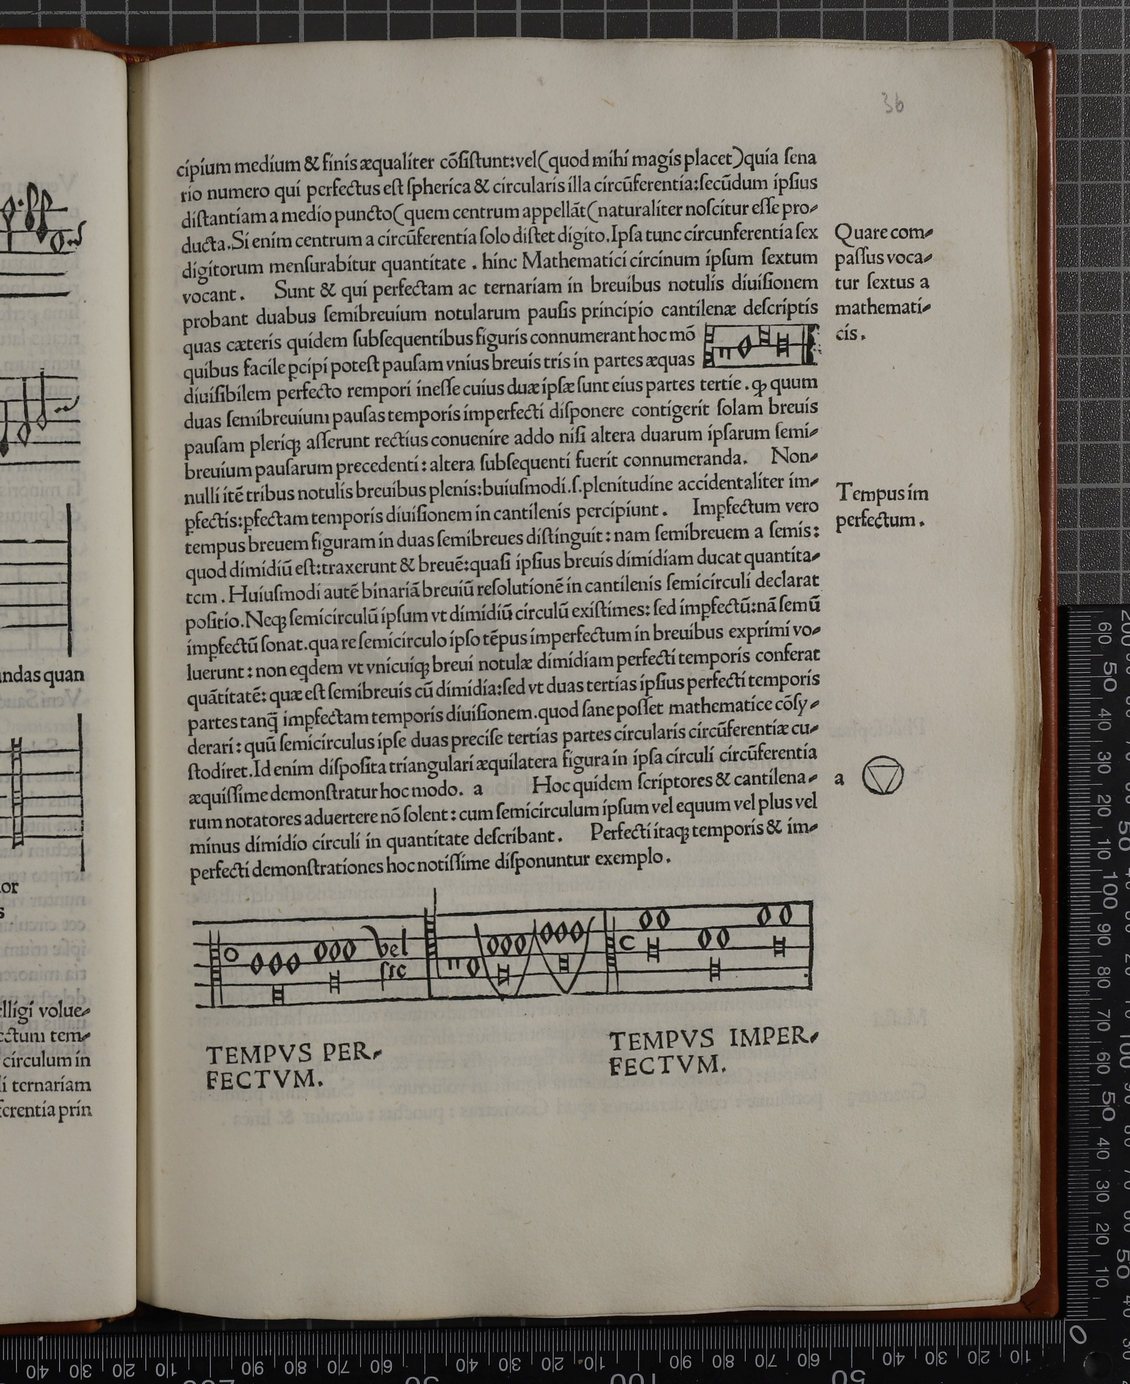 36
cipium medium & finis æqualiter cõsistunt:vel(quod mihi magis placet)quia sena
rio numero qui perfectus est spherica & circularis illa circũferentia:secũdum ipsius
distantiam a medio puncto(quem centrum appellãt(naturaliter noscitur esse pro⸗
ducta.Si enim centrum a circũferentia solo distet digito.Ipsa tunc circunferentia sex
digitorum mensurabitur quantitate . hinc Mathematici circinum ipsum sextum
vocant. Sunt & qui perfectam ac ternariam in breuibus notulis diuisionem
probant duabus semibreuium notularum pausis principio cantilenæ descriptis
quas cæteris quidem subsequentibus figuris connumerant hoc mõ
quibus facile ꝑcipi potest pausam vnius breuis tris in partes æquas
diuisibilem perfecto rempori inesse cuius duæ ipsæ sunt eius partes tertie . ꝙ quum
duas semibreuium pausas temporis imperfecti disponere contigerit solam breuis
pausam pleriqꝫ asserunt rectius conuenire addo nisi altera duarum ipsarum semi⸗
breuium pausarum precedenti : altera subsequenti fuerit connumeranda. Non⸗
nulli itẽ tribus notulis breuibus plenis:huiusmodi.s.plenitudine accidentaliter im⸗
ꝑfectis:ꝑfectam temporis diuisionem in cantilenis percipiunt . Imꝑfectum vero
tempus breuem figuram in duas semibreues distinguit : nam semibreuem a semis:
quod dimidiũ est:traxerunt & breuẽ:quasi ipsius breuis dimidiam ducat quantita⸗
tem . Huiusmodi autẽ binariã breuiũ resolutionẽ in cantilenis semicirculi declarat
positio.Neqꝫ semicirculũ ipsum vt dimidiũ circulũ existimes: sed imꝑfectũ:nã semũ
imꝑfectũ sonat.qua re semicirculo ipso tẽpus imperfectum in breuibus exprimi vo⸗
luerunt : non eqdem vt vnicuiqꝫ breui notulæ dimidiam perfecti temporis conferat
quãtitatẽ: quæ est semibreuis cũ dimidia:sed vt duas tertias ipsius perfecti temporis
partes tanq̃ imꝑfectam temporis diuisionem.quod sane posset mathematice cõsy⸗
derari : quũ semicirculus ipse duas precise tertias partes circularis circũferentiæ cu⸗
stodiret.Id enim disposita triangulari æquilatera figura in ipsa circuli circũferentia
æquissime demonstratur hoc modo. a Hoc quidem scriptores & cantilena⸗
rum notatores aduertere nõ solent : cum semicirculum ipsum vel equum vel plus vel
minus dimidio circuli in quantitate describant . Perfecti itaqꝫ temporis & im⸗
perfecti demonstrationes hoc notissime disponuntur exemplo .
Quare com⸗
passus voca⸗
tur sextus a
mathemati⸗
cis .
Tempus im
perfectum .
a
vel
sic
TEMPVS PER⸗
FECTVM.
TEMPVS IMPER⸗
FECTVM.
ndas quan
or
s
lligi volue⸗
ectum tem⸗
circulum in
li ternariam
ferentia prin